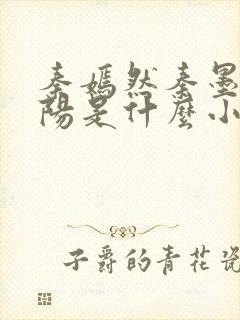 秦嫣然秦墨
陽是什麼小
子爵的青花瓷